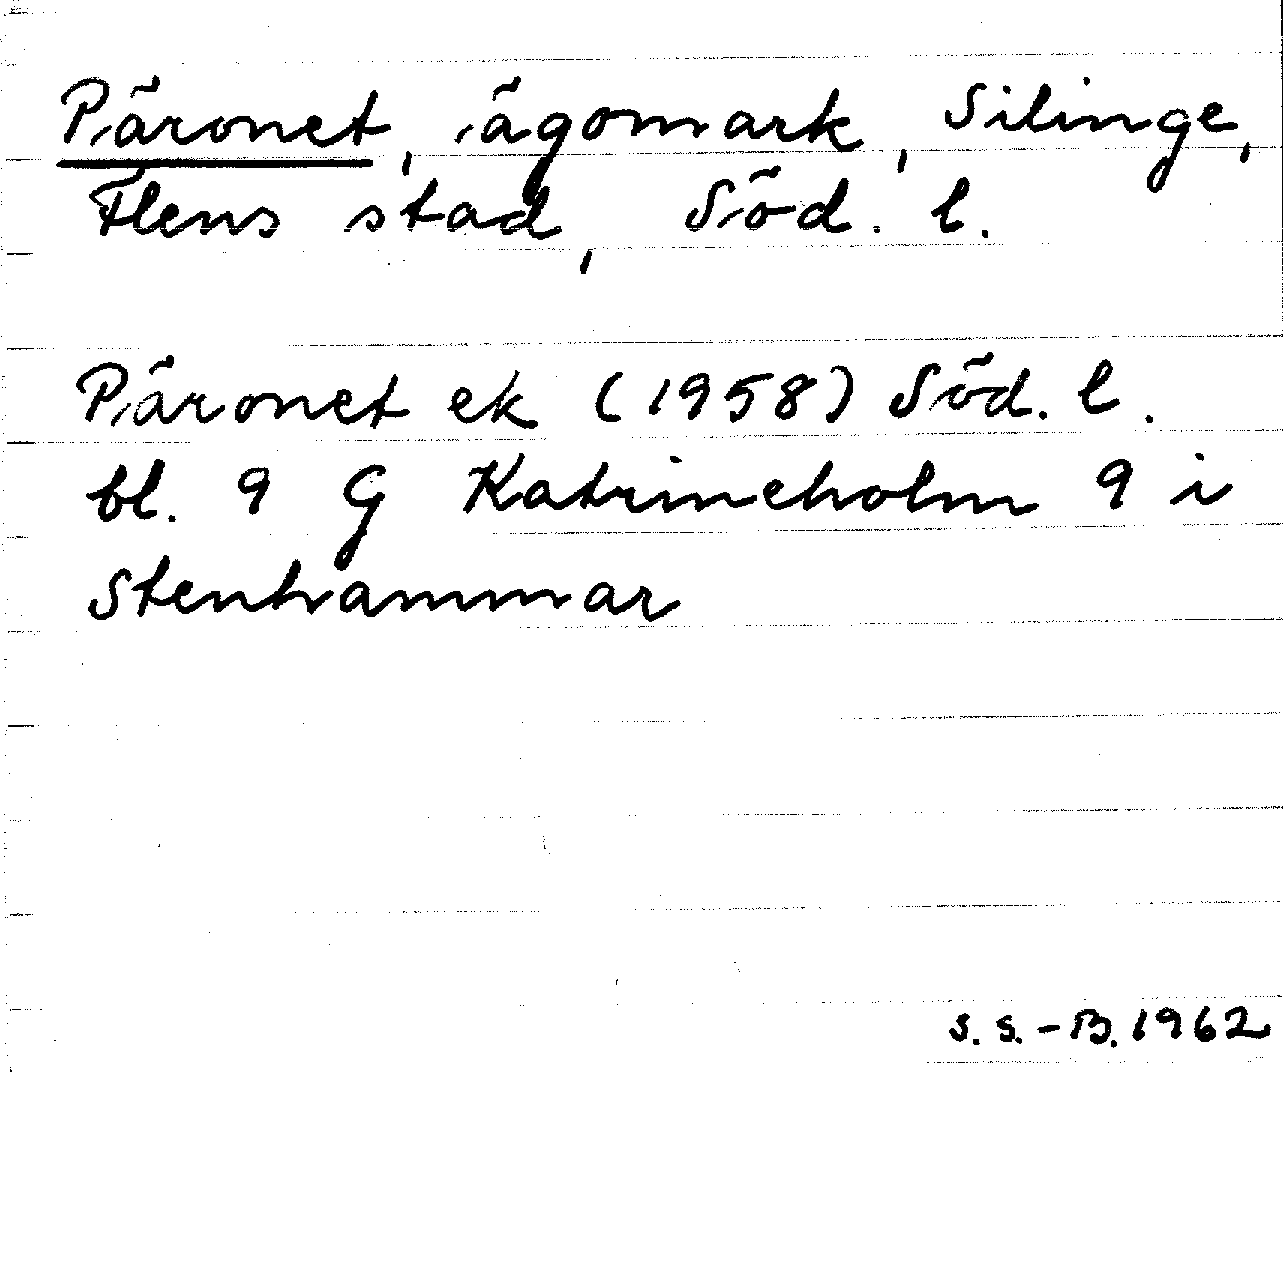 Päronet, ägomark, Silinge,
Flens stad, Söd. l.
Päronet ek (1958) Söd. l.
bl. 9 G Katrineholm 9 i
Stenhammar
S. S.-B. 1962